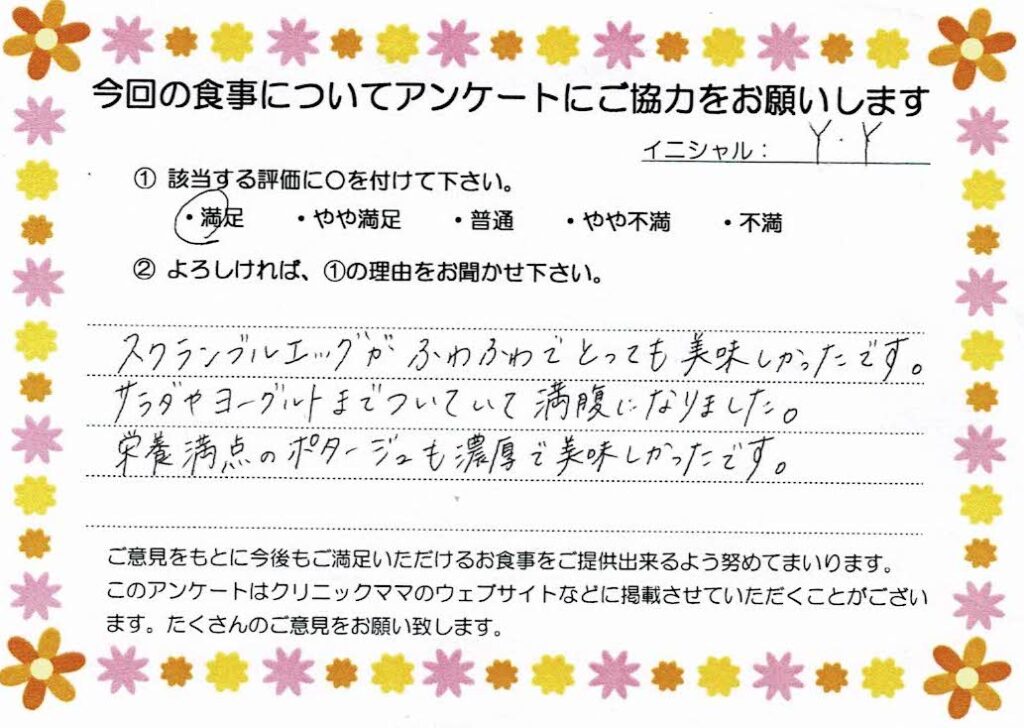 今回の食事についてアンケートにご協力をお願いします
イニシャル： Y・Y
① 該当する評価に〇を付けて下さい。
・満足 ・やや満足 ・普通 ・やや不満 ・不満
② よろしければ、①の理由をお聞かせ下さい。
スクランブルエッグがふわふわでとっても美味しかったです。
サラダやヨーグルトまでついていて満腹になりました。
栄養満点のポタージュも濃厚で美味しかったです。
ご意見をもとに今後もご満足いただけるお食事をご提供出来るよう努めてまいります。
このアンケートはクリニックママのウェブサイトなどに掲載させていただくことがござい
ます。たくさんのご意見をお願い致します。